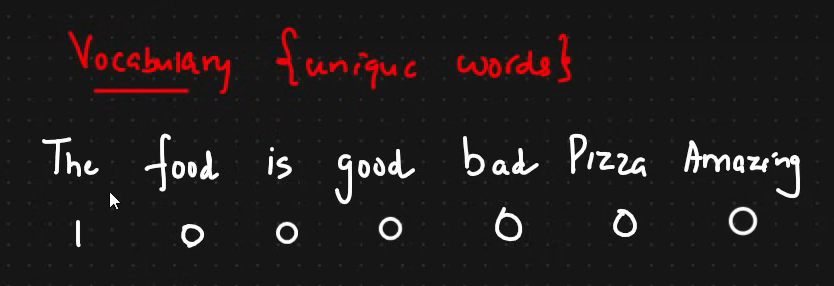 Vocabulary {unique words}
The food is good bad Pizza Amazing
1 0 0 0 0 0 0